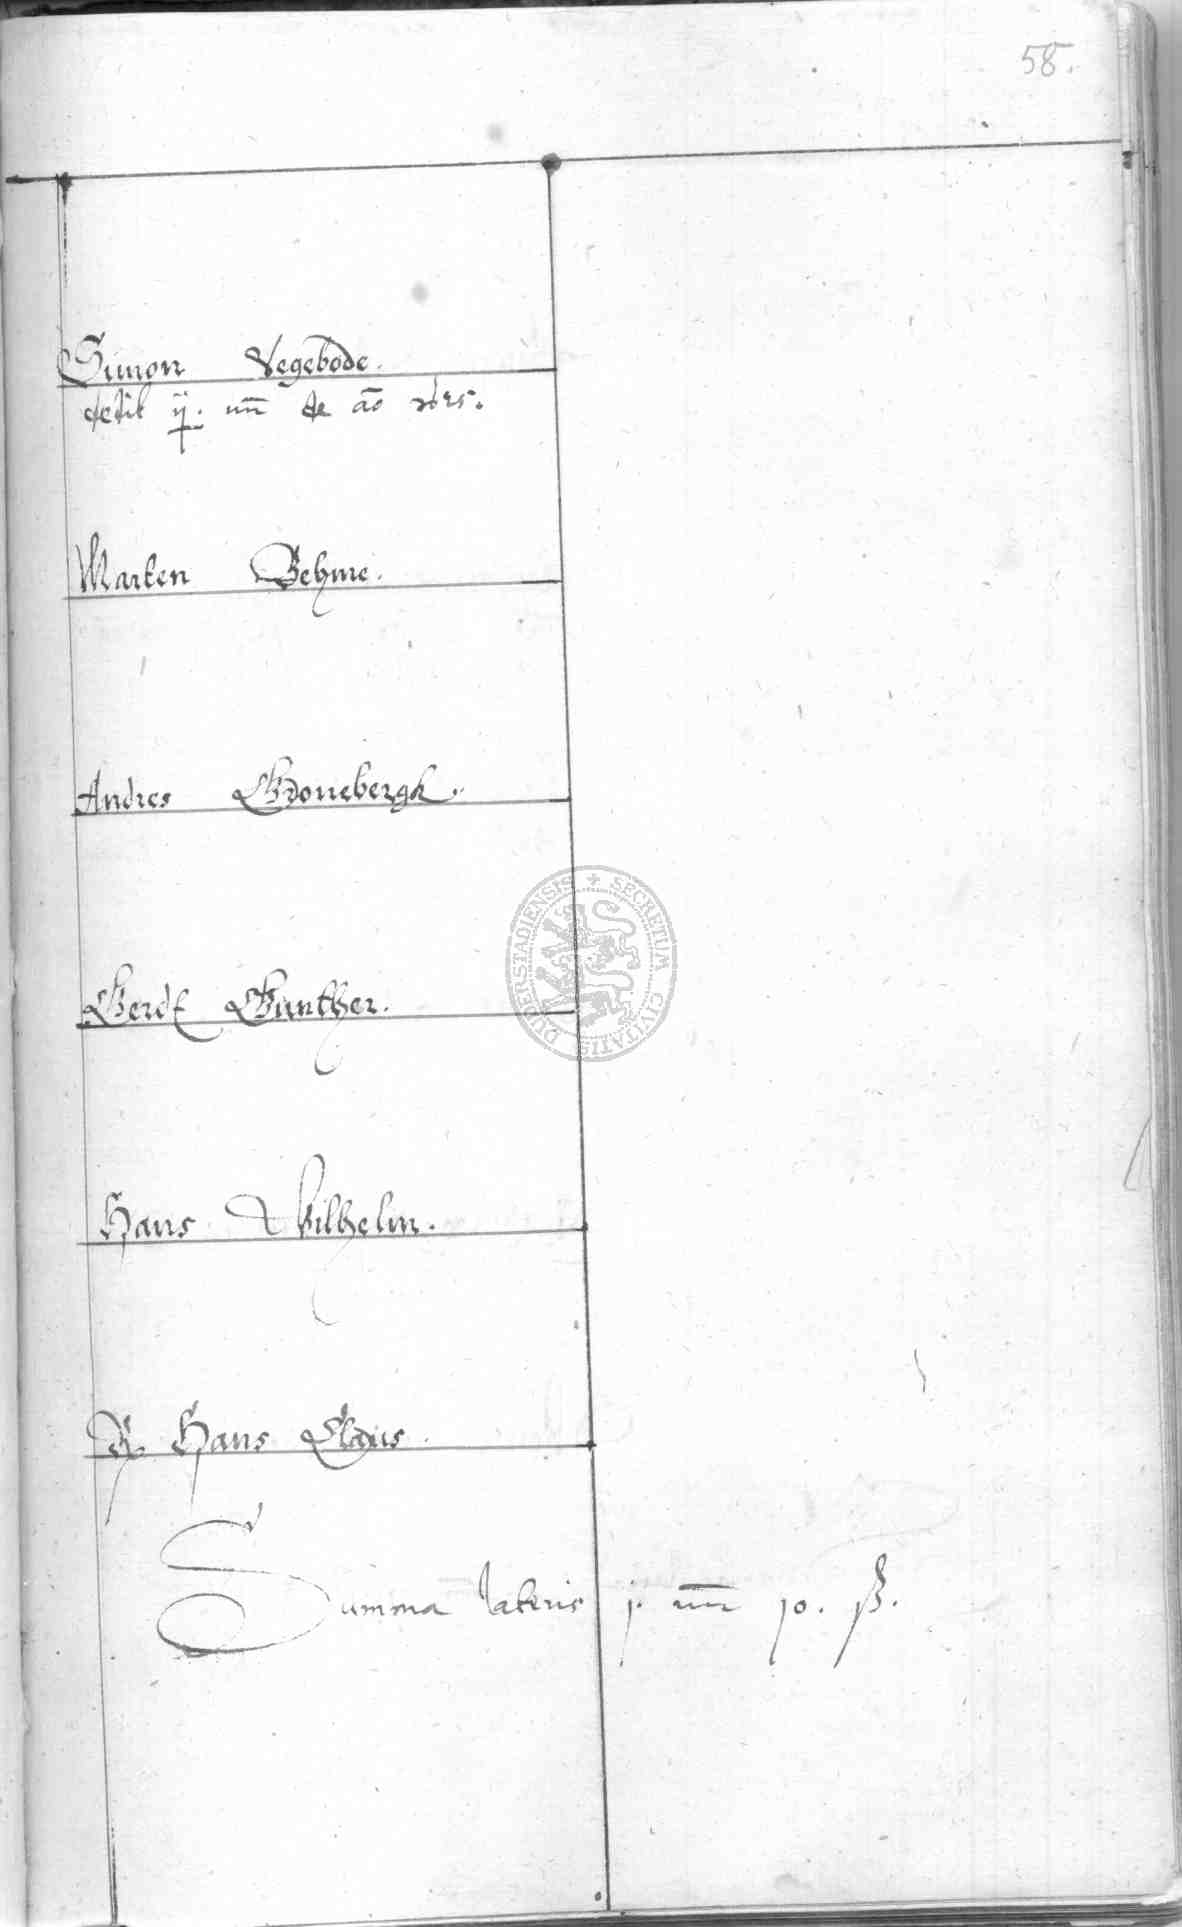 58.
Simon Vegebode.
dedit ij. mr de ao
Marten Behme.
Andres Gronebergk.
Gerdt Gunther.
Hans Wilhelm.
Hans Claus.
Summa lateris j. mr 10. ß.
SECRETUM CIVITATIS DUDERSTADIENSIS